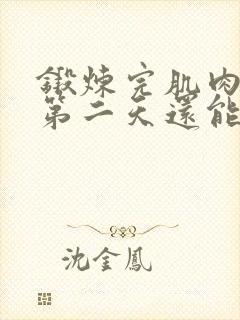 鍛煉完肌肉
第二天還能
沈金鳳